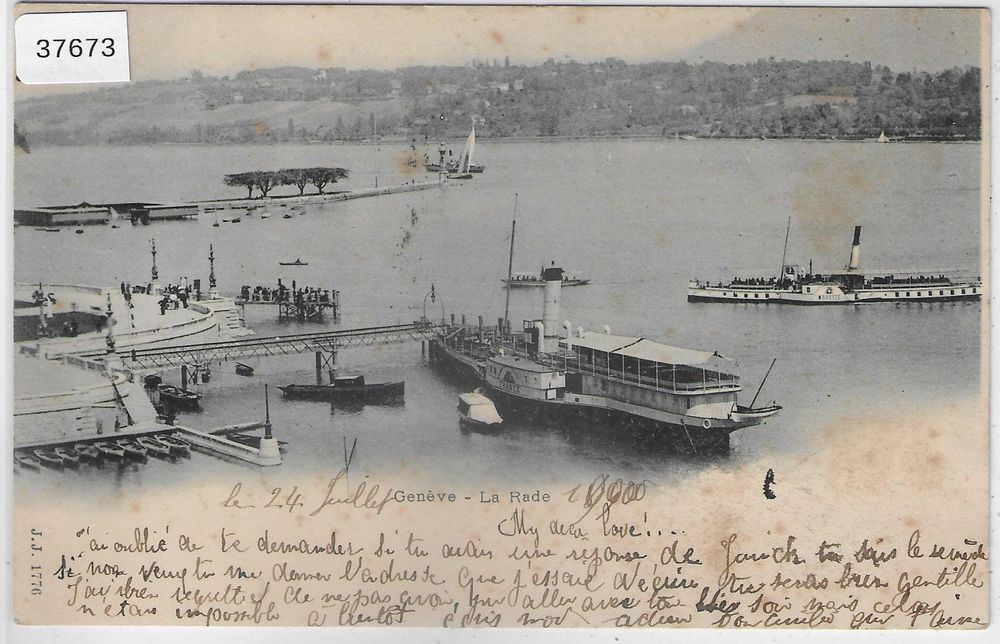 37673
FRANCE
le 24 Juillet Genève - La Rade 1900
My dear love!...
J.J. 1776
J'ai oublié de te demander si tu avais une réponse de
Si non veux tu me donner l'adresse que j'essaie d'écrire tu seras bien gentille
J'ai bien regretté de ne pas avoir pu aller avec toi hier soir mais cela
n'était impossible à bientôt